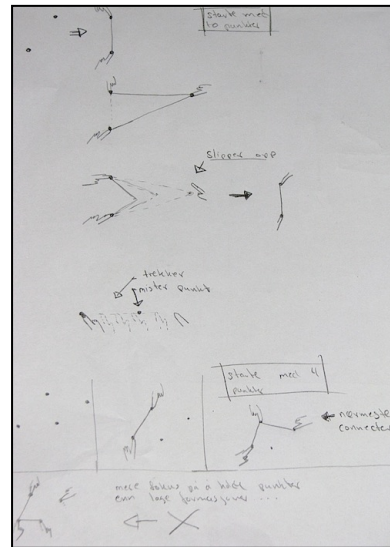 starte med
to punkter
slipper opp
trekker
mister punkt
starte med 4
punkter
nærmeste
connecter
mere fokus på å holde punkter
enn lage former/